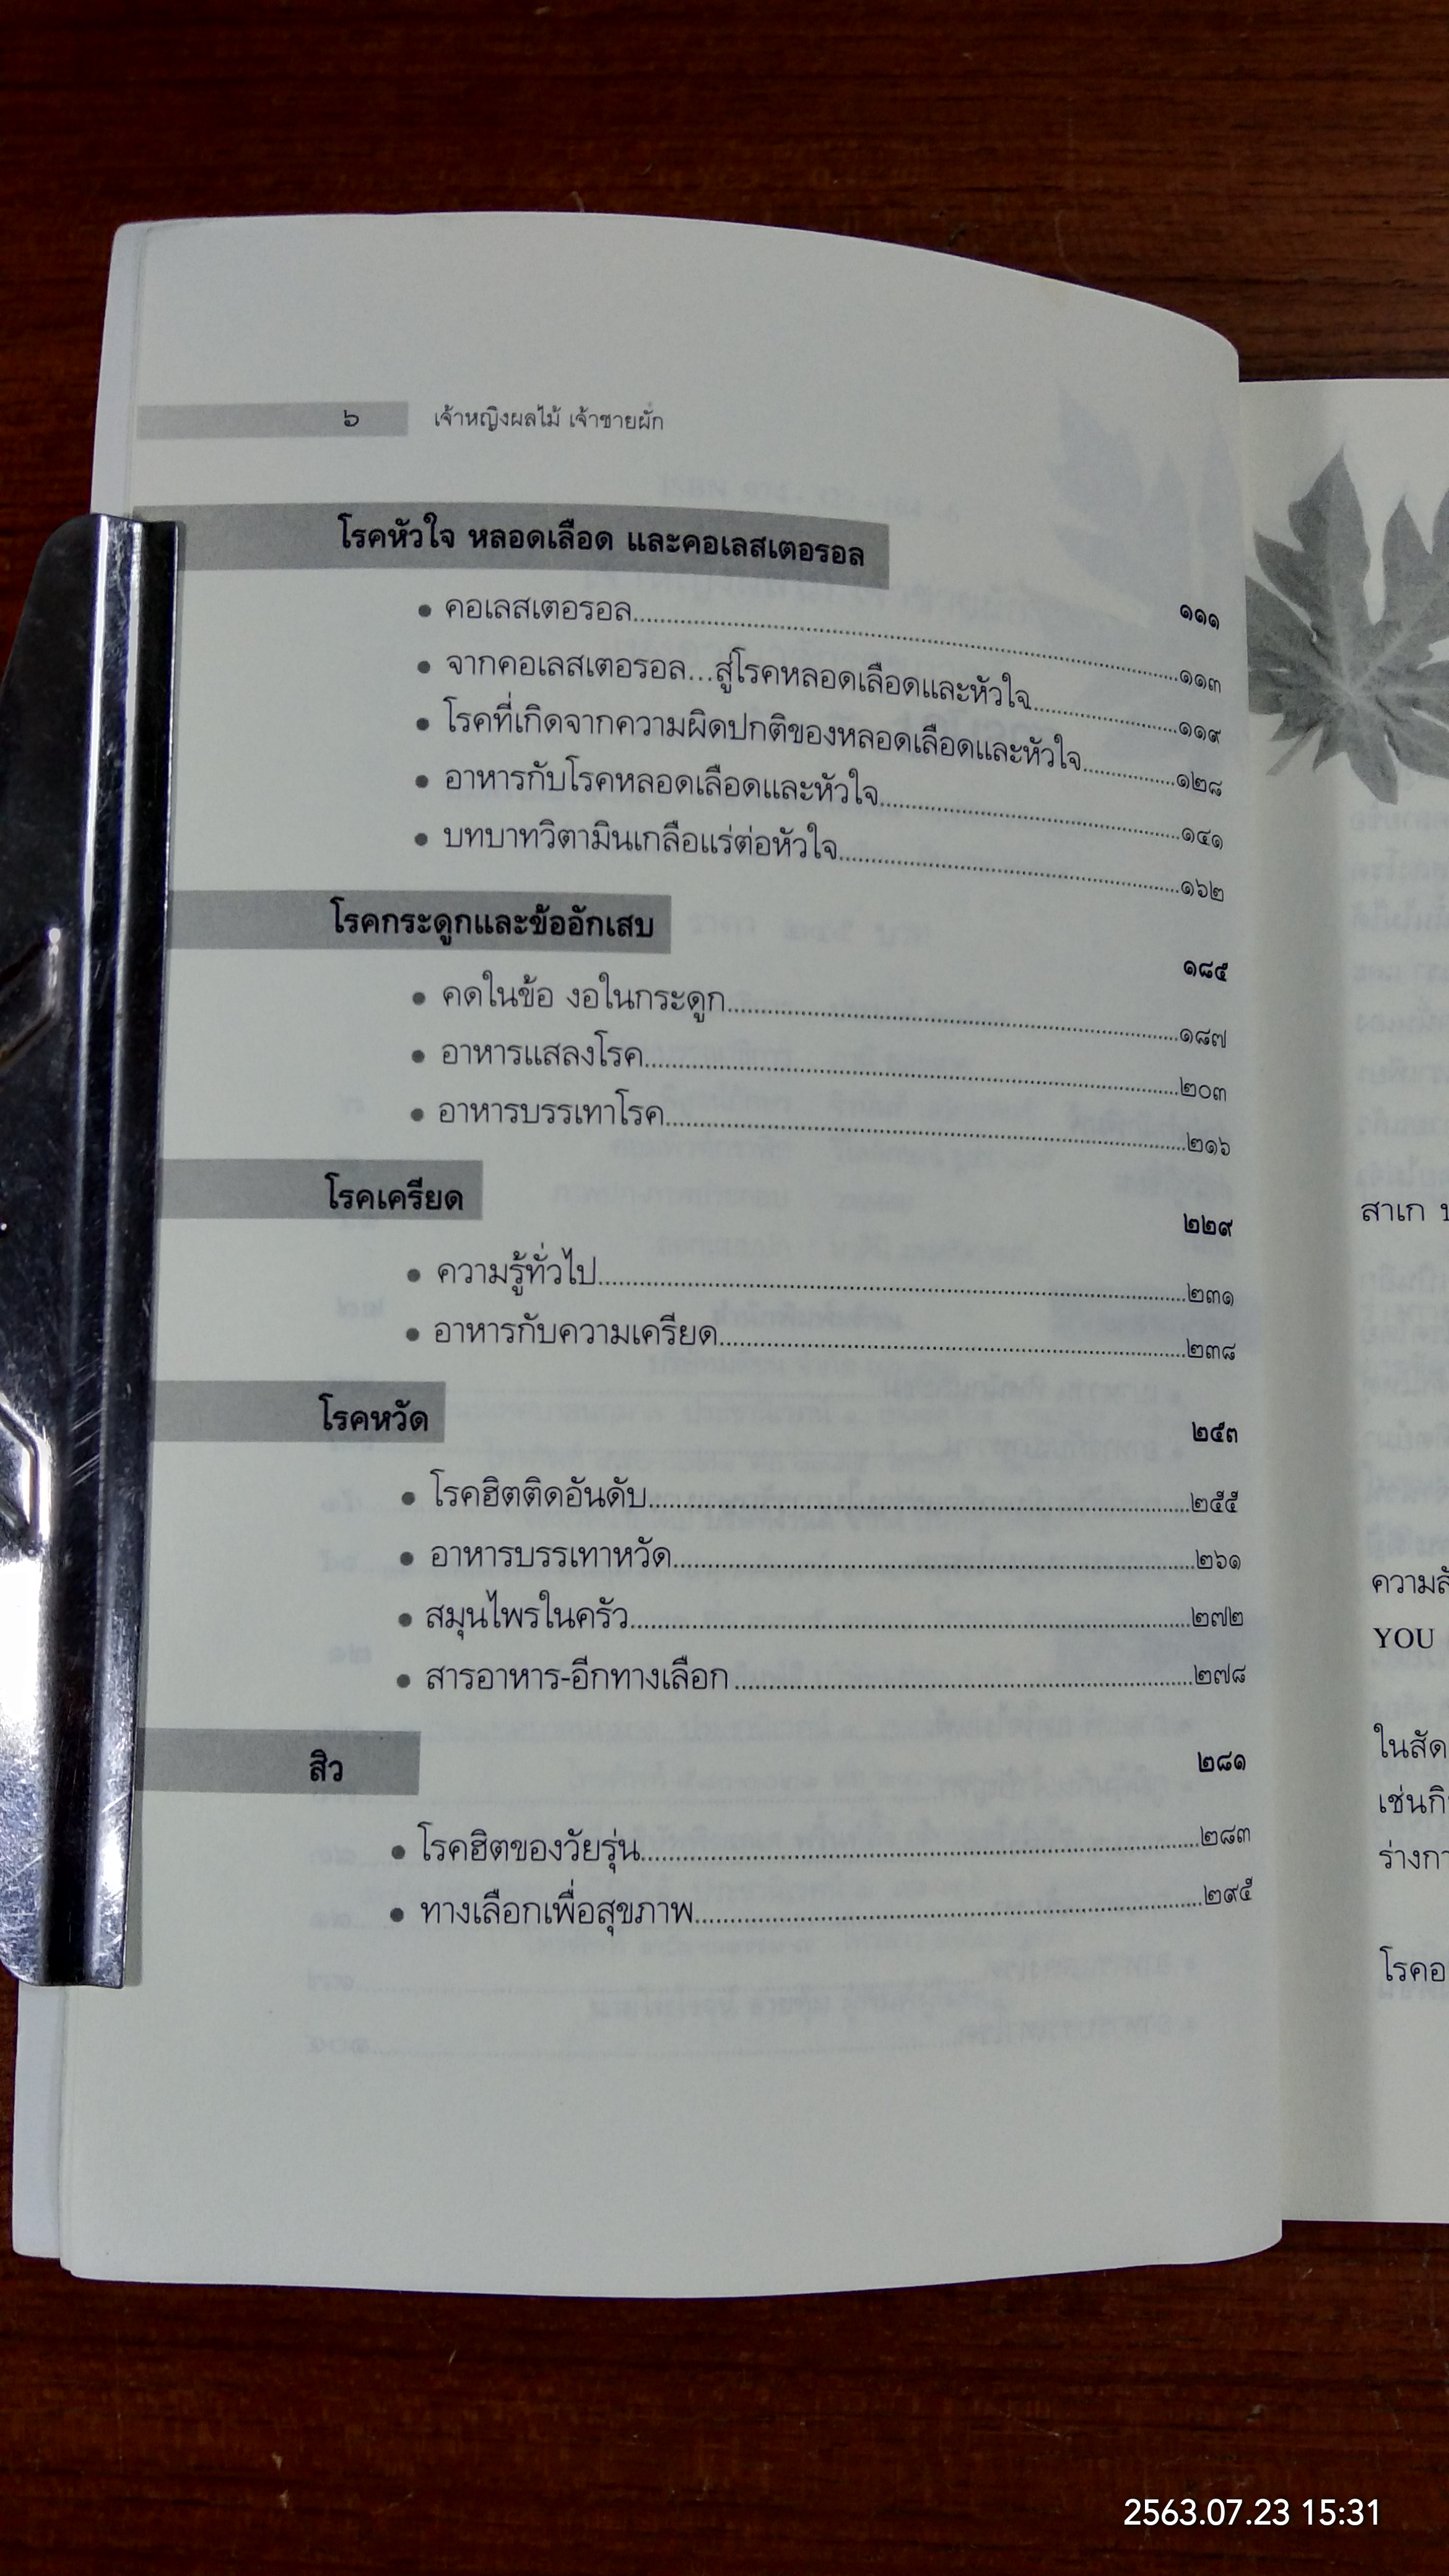 ๖ เจ้าหญิงผลไม้ เจ้าชายผัก
โรคหัวใจ หลอดเลือด และคอเลสเตอรอล ๑๑๑
• คอเลสเตอรอล ๑๑๓
• จากคอเลสเตอรอล...สู่โรคหลอดเลือดและหัวใจ ๑๑๙
• โรคที่เกิดจากความผิดปกติของหลอดเลือดและหัวใจ ๑๒๘
• อาหารกับโรคหลอดเลือดและหัวใจ ๑๔๑
• บทบาทวิตามินเกลือแร่ต่อหัวใจ ๑๖๒
โรคกระดูกและข้ออักเสบ ๑๘๕
• คดในข้อ งอในกระดูก ๑๘๗
• อาหารแสลงโรค ๒๐๓
• อาหารบรรเทาโรค ๒๑๖
โรคเครียด ๒๒๙
• ความรู้ทั่วไป ๒๓๑
• อาหารกับความเครียด ๒๓๘
โรคหวัด ๒๕๓
• โรคฮิตติดอันดับ ๒๕๕
• อาหารบรรเทาหวัด ๒๖๑
• สมุนไพรในครัว ๒๗๒
• สารอาหาร-อีกทางเลือก ๒๗๘
สิว ๒๘๑
• โรคฮิตของวัยรุ่น ๒๘๓
• ทางเลือกเพื่อสุขภาพ ๒๙๕
สาเก
YOU
ในสัด
เช่นกิ
ร่างกา
โรคอ
2563.07.23 15:31